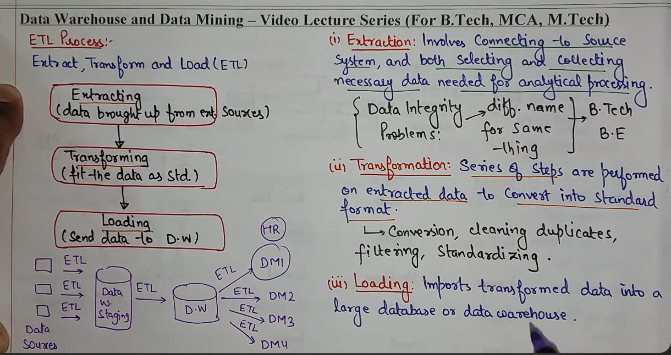 Data Warehouse and Data Mining – Video Lecture Series (For B.Tech, MCA, M.Tech)
ETL Process:-
Extract, Transform and Load (ETL)
Extracting
(data brought up from ext. sources)
Transforming
(fit the data as std.)
Loading
(Send data to D.W)
HR
ETL
ETL
ETL
Data
Sources
Data
W
Staging
ETL
D.W
ETL
DM1
ETL
DM2
ETL
DM3
ETL
DM4
(i) Extraction: Involves Connecting to Source
System, and both Selecting and collecting
necessary data needed for analytical processing.
{ Data Integrity → diff. name ] → B.Tech
Problems: for same B.E
thing
(ii) Transformation: Series of Steps are performed
on extracted data to Convert into standard
format.
↳ Conversion, cleaning duplicates,
filtering, Standardizing.
(iii) Loading: Imports transformed data into a
large database or data warehouse.